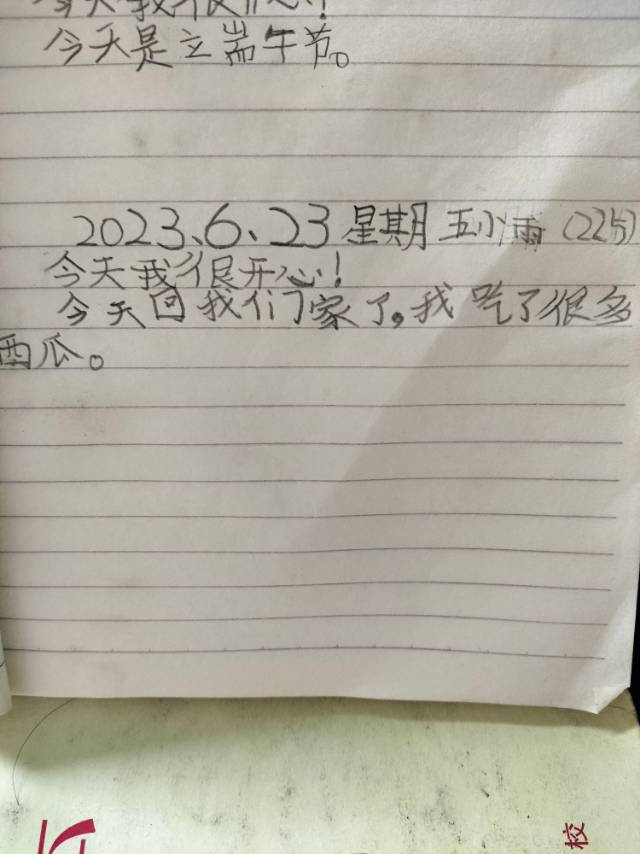 今天我很开心！
今天是立端午节。
2023、6、23 星期五小雨（22点）
今天我很开心！
今天回我们家了，我吃了很多
西瓜。
校